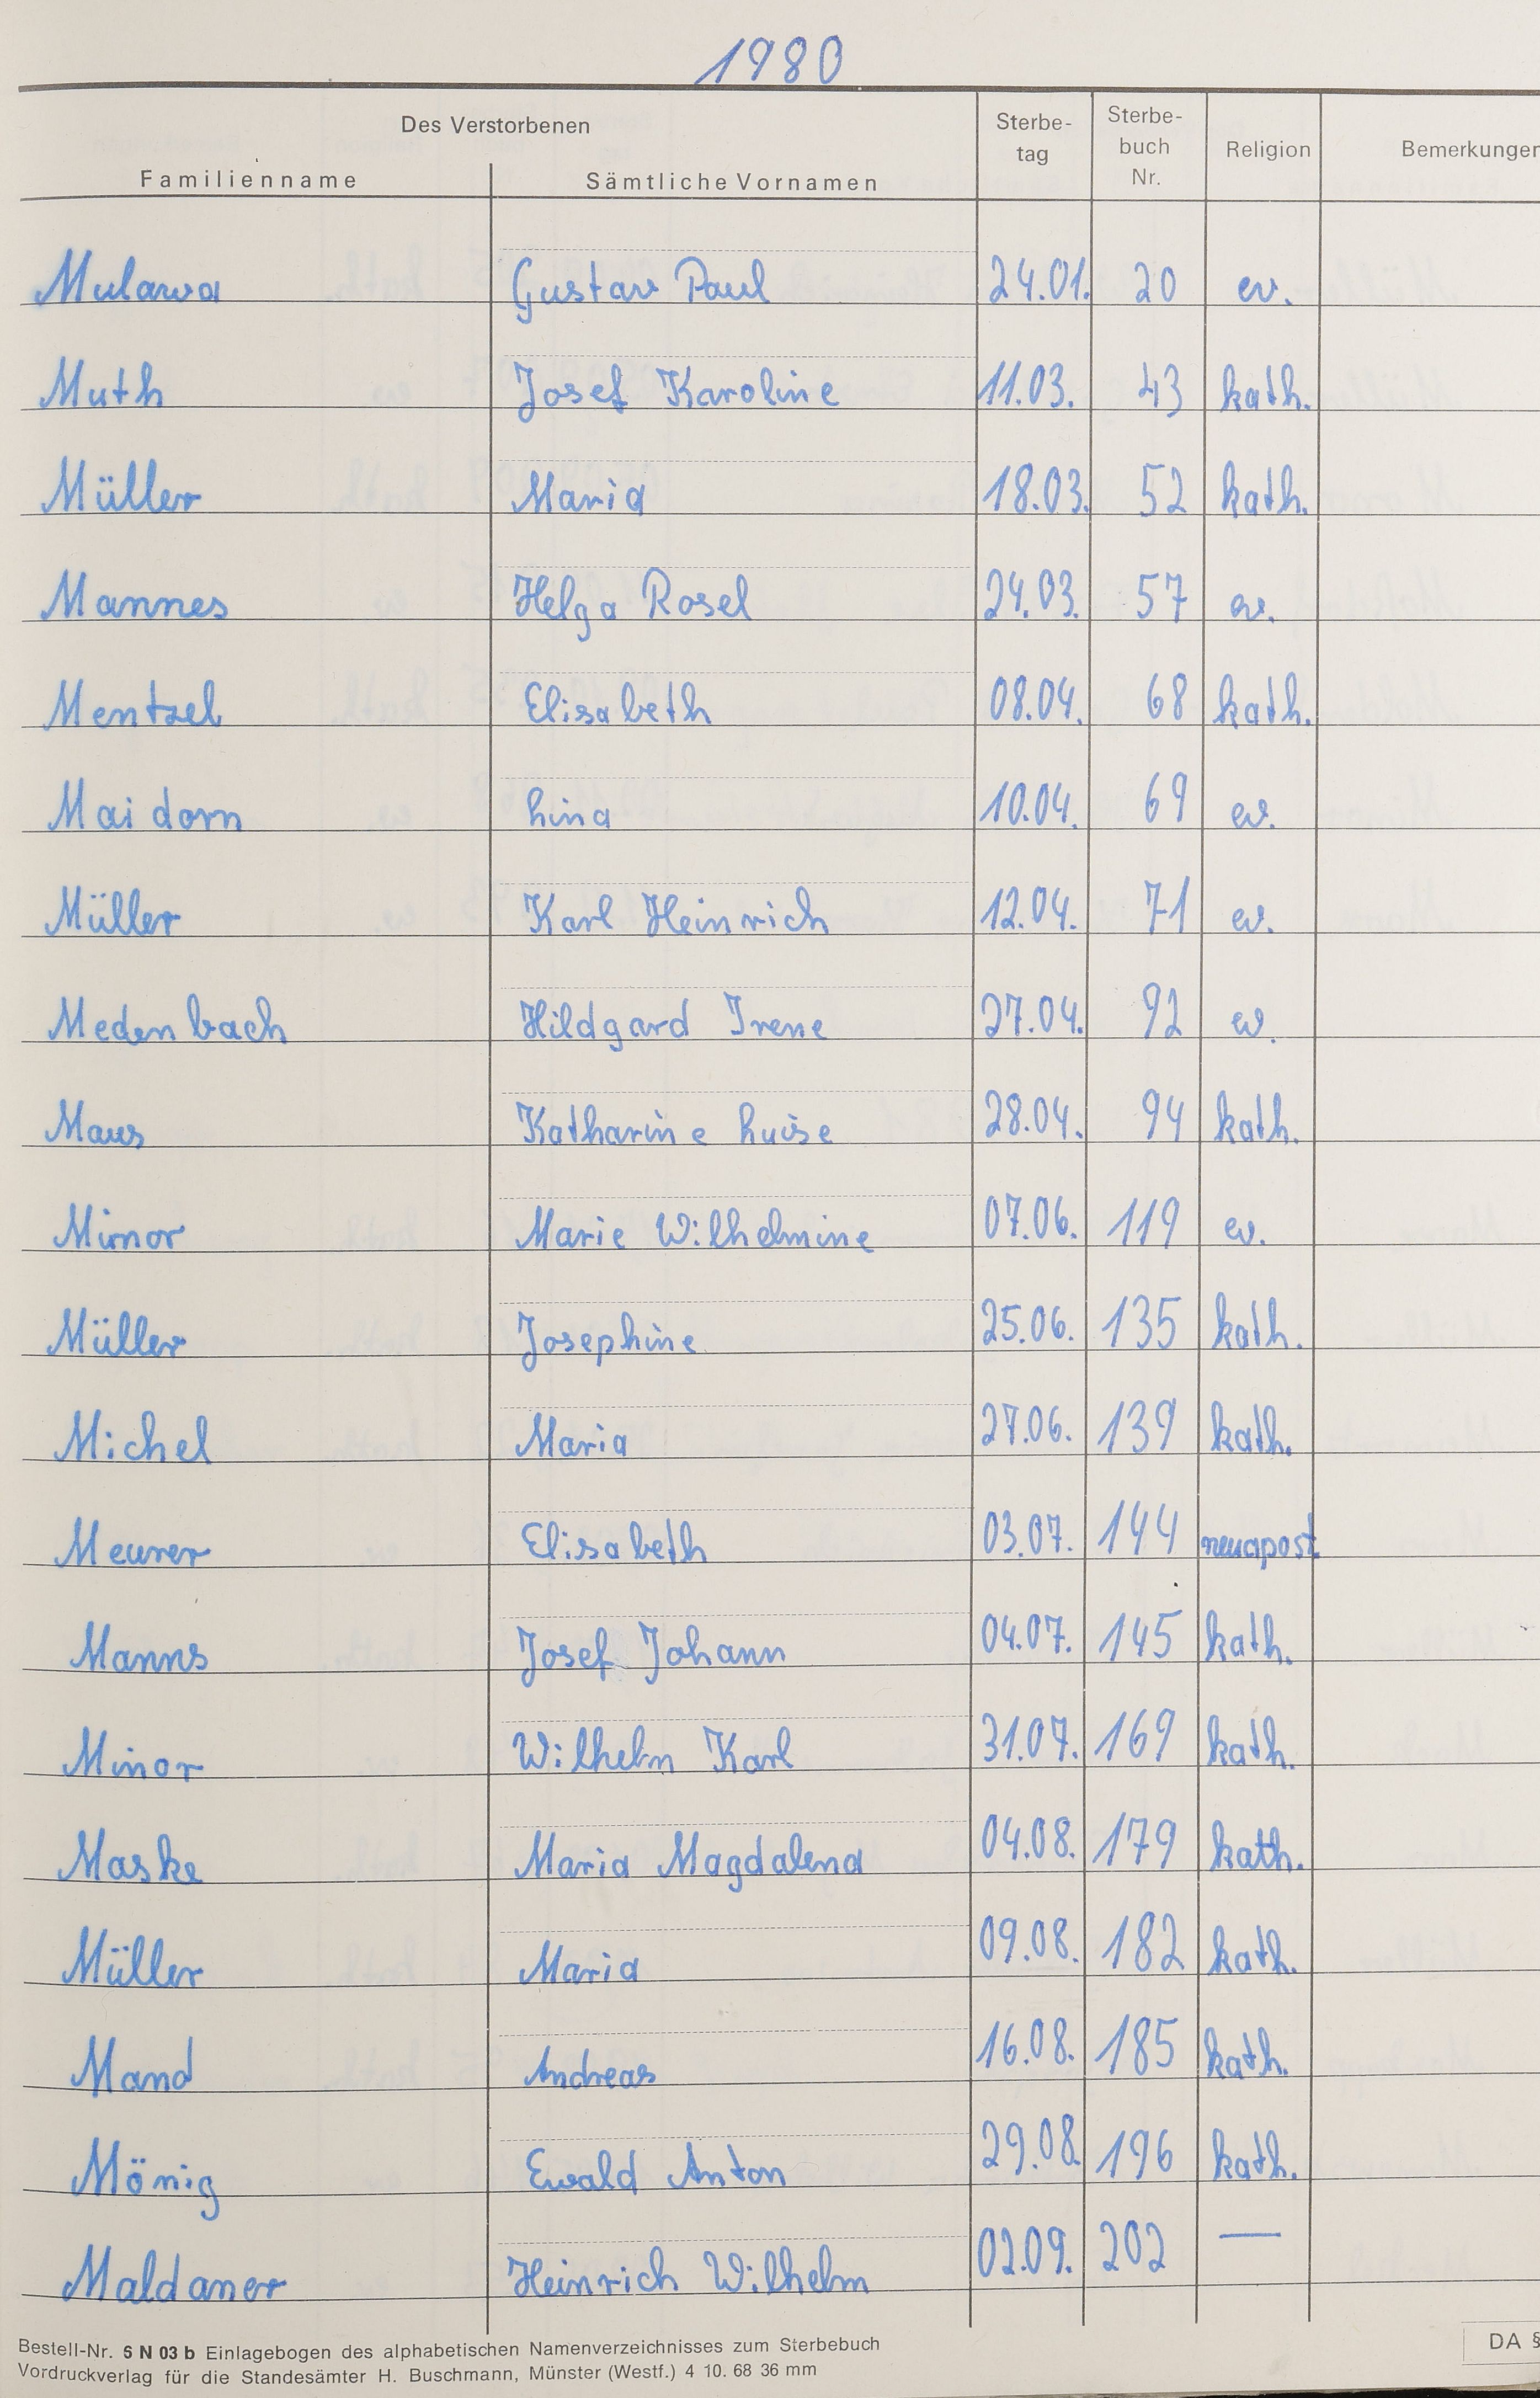 1980
Des Verstorbenen
Familienname Sämtliche Vornamen Sterbe-tag Sterbe-buch Nr. Religion Bemerkungen
Mulawa Gustav Paul 24.01. 20 ev.
Muth Josef Karoline 11.03. 43 kath.
Müller Maria 18.03. 52 kath.
Mannes Helga Rosel 24.03. 57 ev.
Mentzel Elisabeth 08.04. 68 kath.
Maidorn Lina 10.04. 69 ev.
Müller Karl Heinrich 12.04. 71 ev.
Medenbach Hildgard Irene 27.04. 92 ev.
Maus Katharine Luise 28.04. 94 kath.
Minor Marie Wilhelmine 07.06. 119 ev.
Müller Josephine 25.06. 135 kath.
Michel Maria 27.06. 139 kath.
Meurer Elisabeth 03.07. 144 neuapost.
Manns Josef Johann 04.07. 145 kath.
Minor Wilhelm Karl 31.07. 169 kath.
Maske Maria Magdalena 04.08. 179 kath.
Müller Maria 09.08. 182 kath.
Mand Andreas 16.08. 185 kath.
Mönig Ewald Anton 29.08. 196 kath.
Maldaner Heinrich Wilhelm 02.09. 202 —
Bestell-Nr. 5 N 03 b Einlagebogen des alphabetischen Namenverzeichnisses zum Sterbebuch
Vordruckverlag für die Standesämter H. Buschmann, Münster (Westf.) 4 10. 68 36 mm
DA §